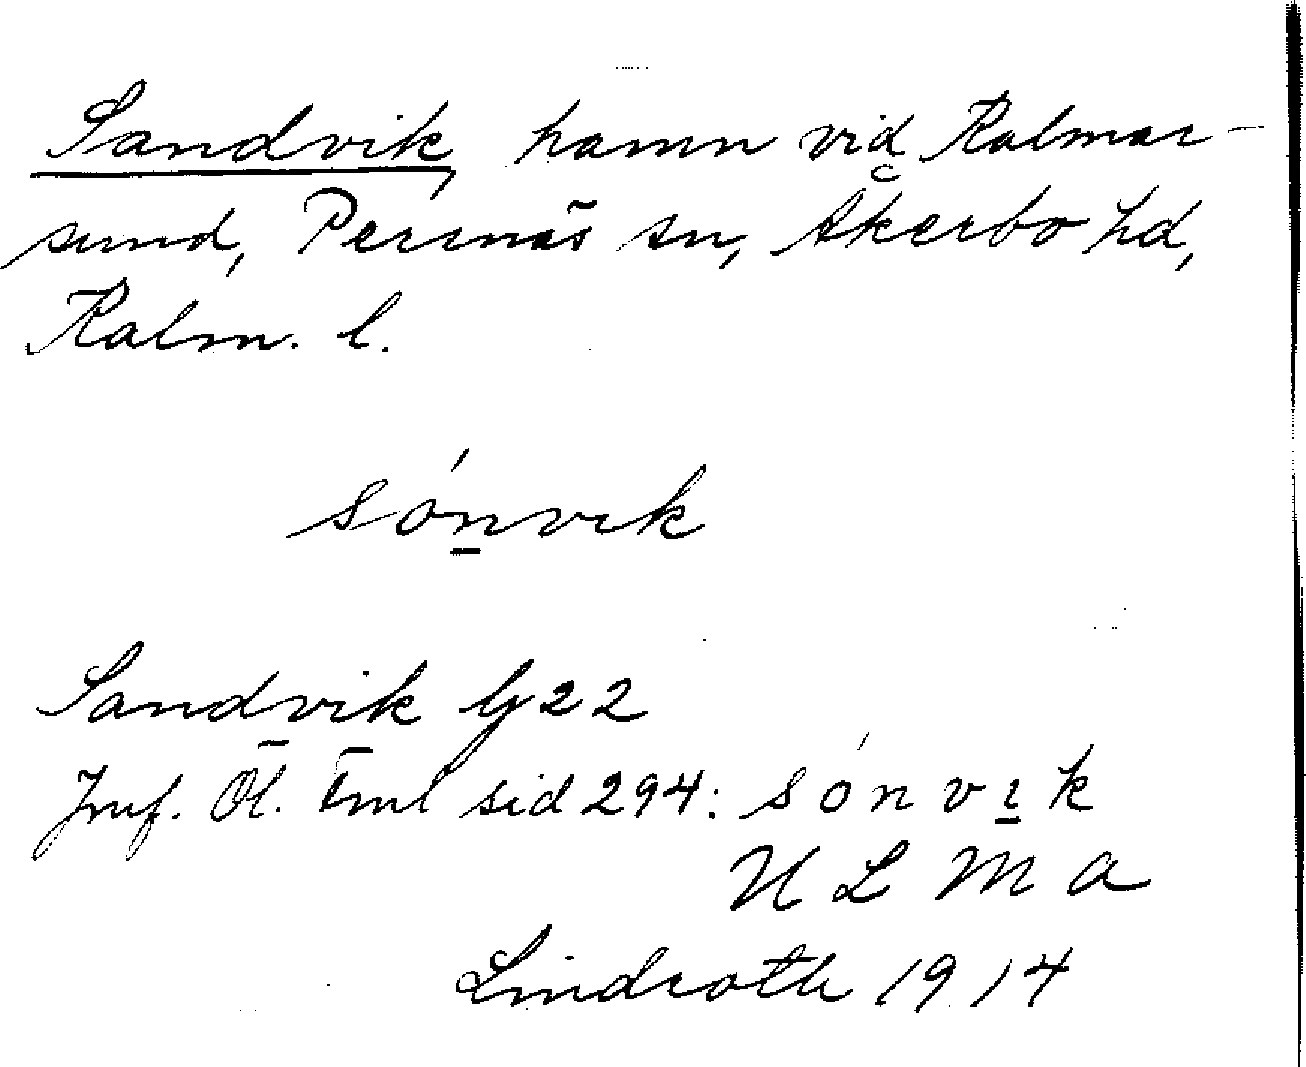 Sandvik, hamn vid Kalmar-
sund, Persnäs sn, Åkerbo hd,
Kalm. l.
sónvık
Sandvik G22
Jmf. Öl. Eml sid 294: sónvık
ULMA
Lindroth 1914